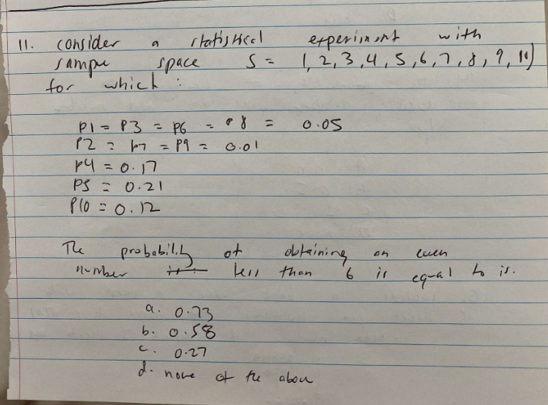 11. consider a statistical experiment with
sample space S = 1, 2, 3, 4, 5, 6, 7, 8, 9, 10)
for which :
P1 = P3 = P6 = P8 = 0.05
P2 = P7 = P9 = 0.01
P4 = 0.17
P5 = 0.21
P10 = 0.12
The probability of obtaining an even
number less than 6 is equal to is.
a. 0.73
b. 0.58
c. 0.27
d. none of the above